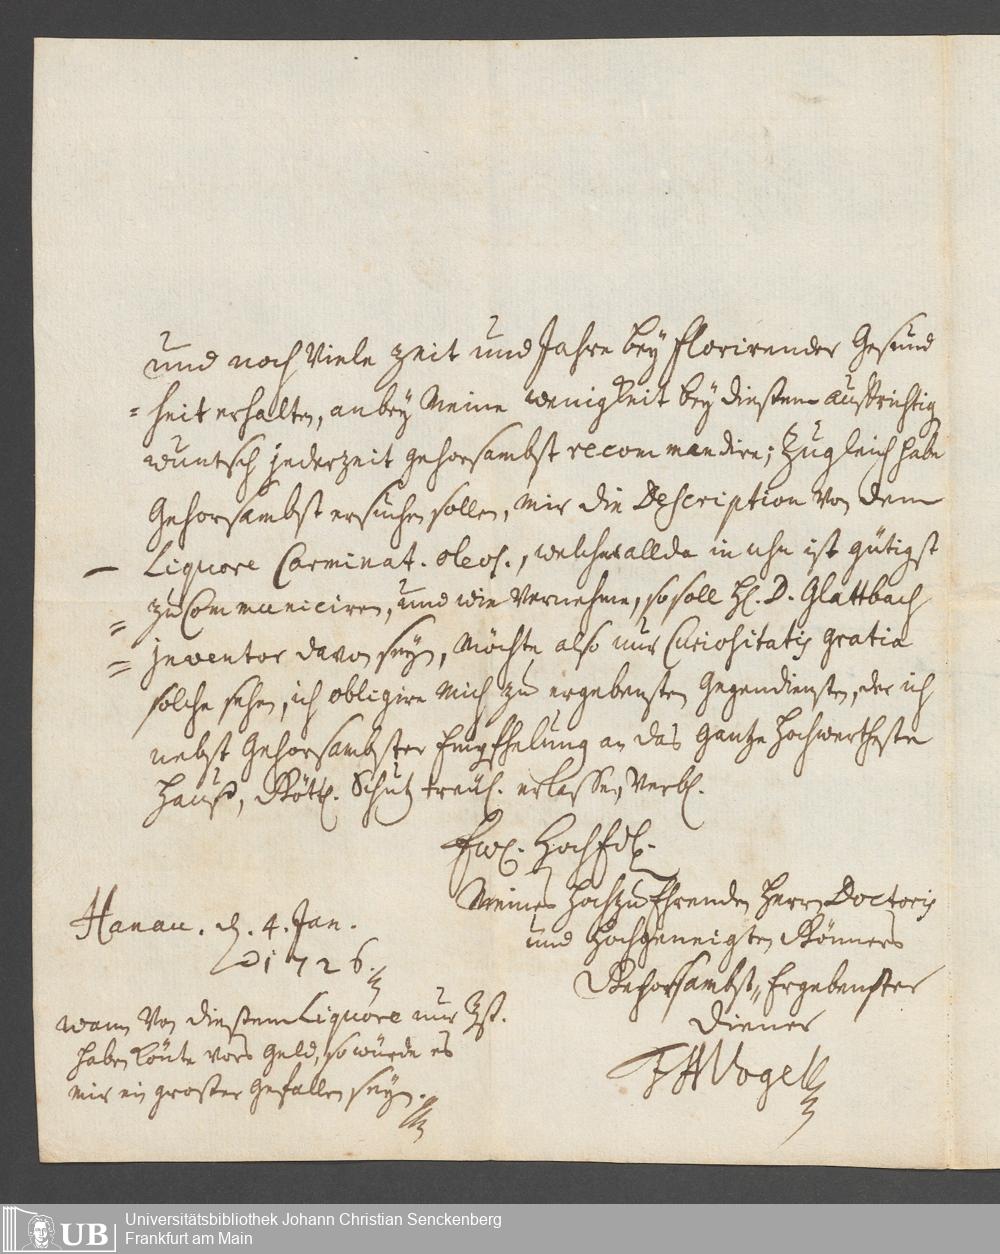 und noch Viele Zeit und Jahre bey florirender Gesund
= heit erhalten, anbey Meine wenigkeit bey dießem auffrichtig
wuntsch jederzeit gehorsambst recommendire; Zugleich habe
gehorsambst ersuchen sollen, mir die Description von dem
Liquore Carminat. oleos., welches allda in uhu ist gütigst
zu Communiciren, und wie Vernehme, so soll H. D. Glattbach
jnventor davon seyn, Möchte also nur Curiositatis gratia
solche sehen, ich obligire mich zu ergebensten gegendiensten, der ich
nebst gehorsambster Empfhelung an das gantze Hochwertheste
Hauß, Göttl. Schutz treül. erlasse, Verbl.
Ew. HochEdl.
Meines Hochzu Ehrenden Herrn Doctoris
und Hochgeneigten Gönners
Gehorsambst, Ergebenster
Diener
Vogel
Hanau. d. 4. Jan.
1726.
wann Von dießem Liquore nur
haben könte vors geld, so würde es
mir ein großer gefallen seyn.
UB
Universitätsbibliothek Johann Christian Senckenberg
Frankfurt am Main